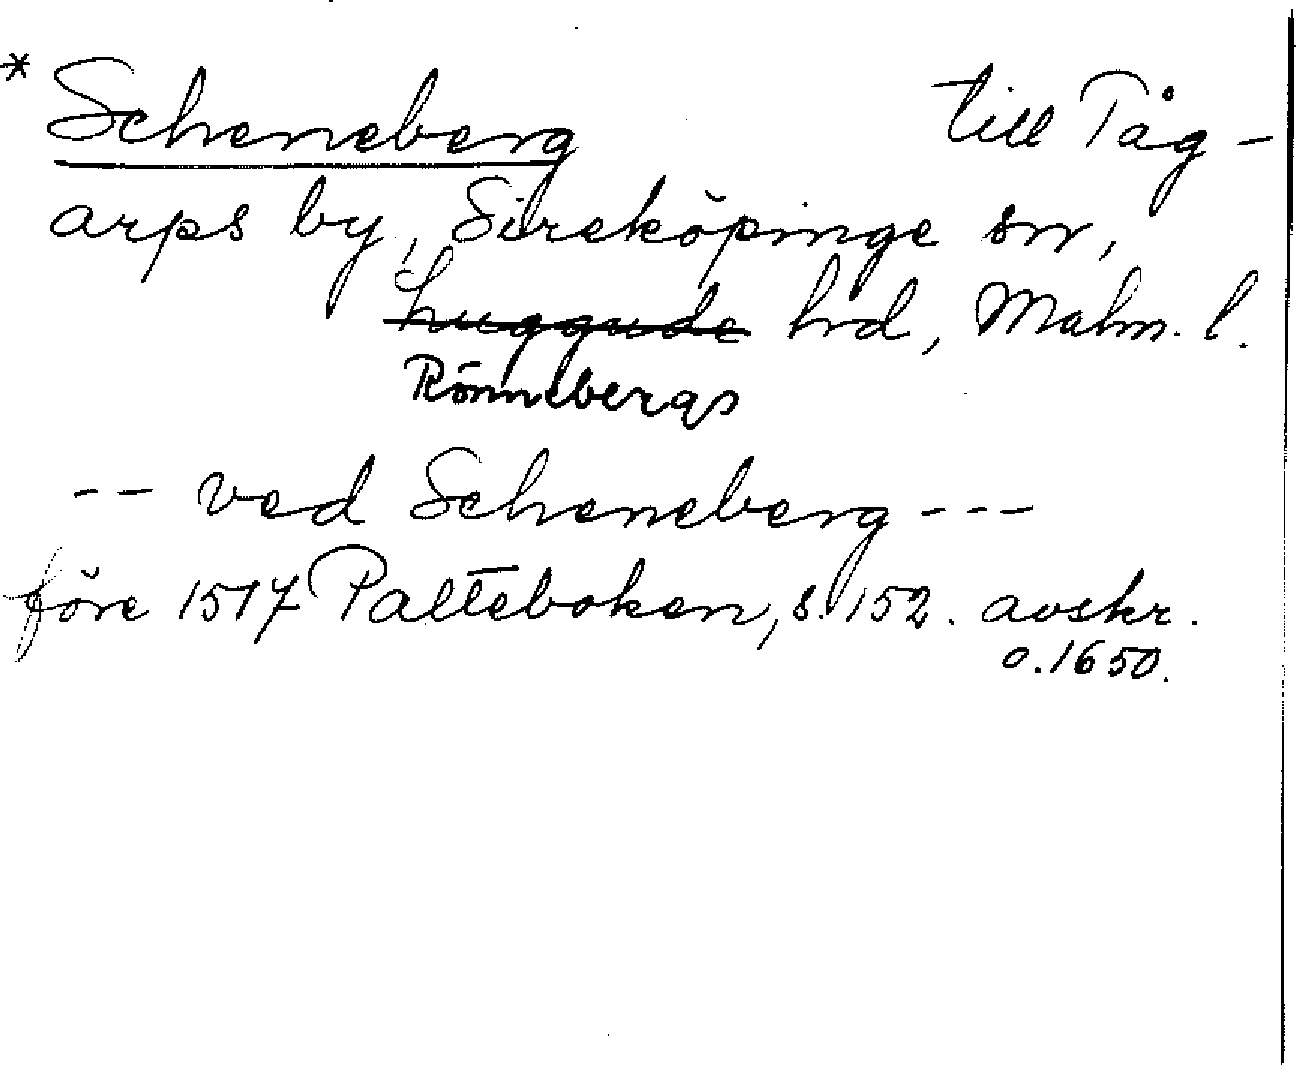 * Scheneberg till Tåg-
arps by, Sireköpinge sn,
Luggude hrd, Malm. l.
Rönnebergs
-- ved Scheneberg ---
före 1517 Palteboken, s. 152. avskr.
o. 1650.